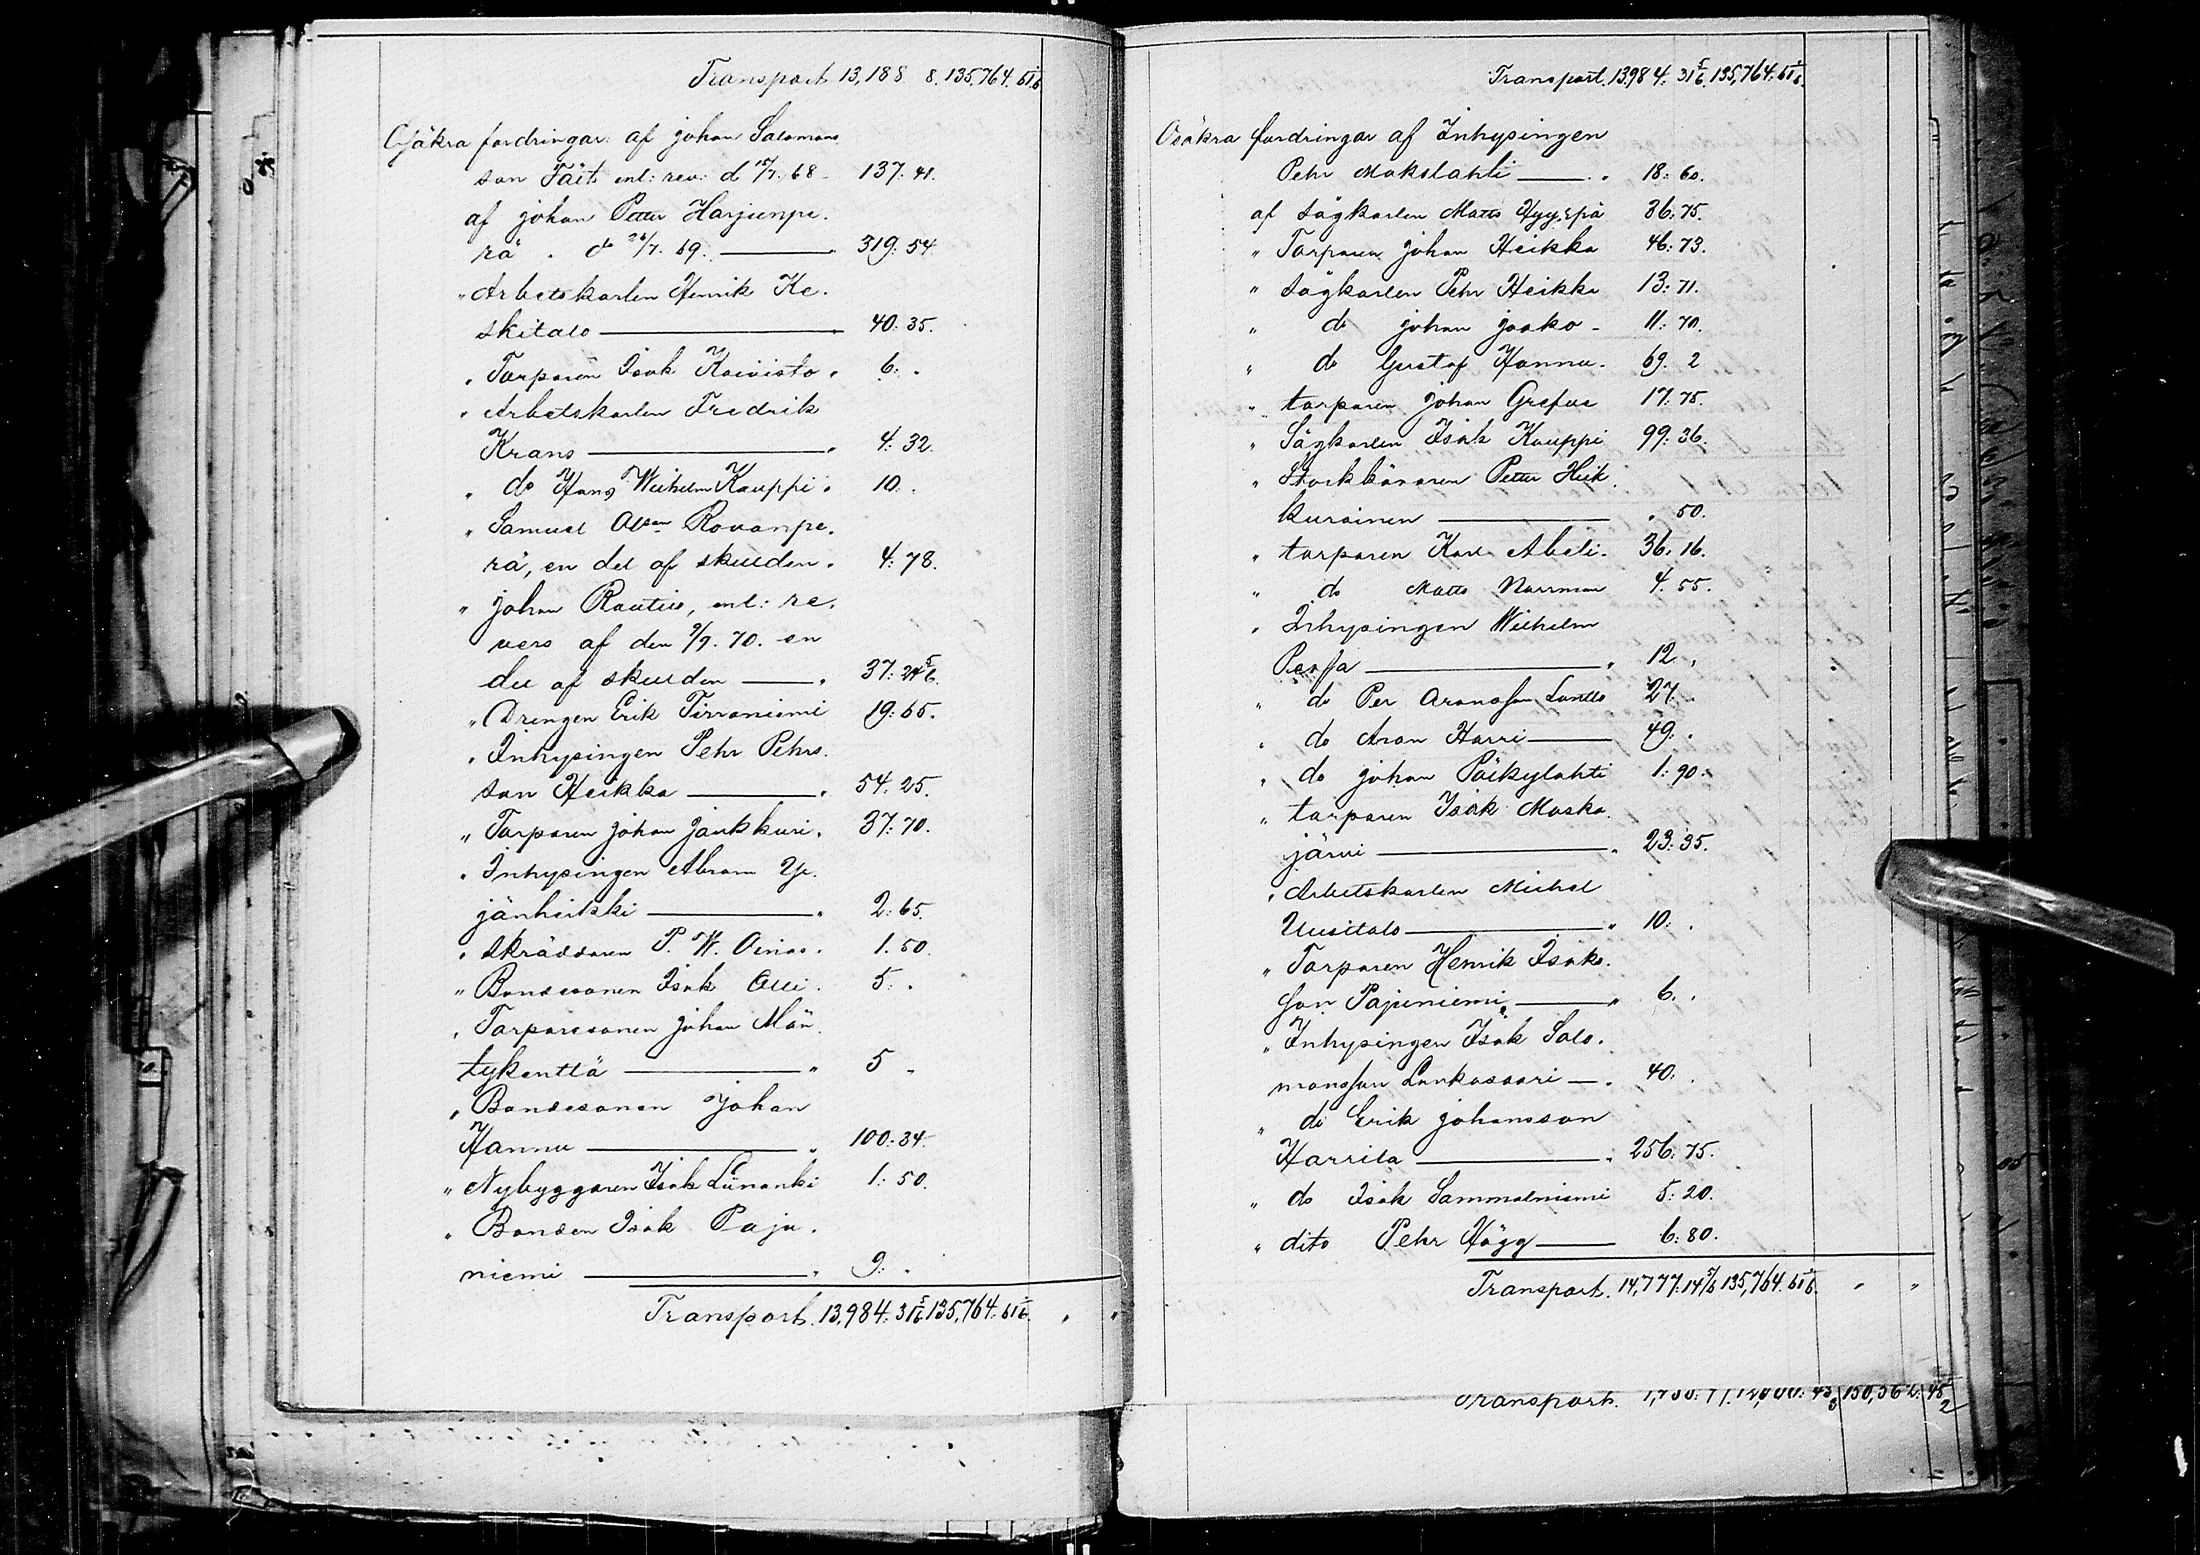 Transport 13,188 8. 135,764. 61 1/6
Osäkra fordringar af johan Salomons
son Täit enl: rev: d 15/7. 68 137: 41.
af johan Petter Harjunpe.
rä . do 26/7. 69. 319: 54
" Arbetskarlen Henrik Ke.
skitalo 40: 35.
" Torparen Isak Koivisto . 6: .
" Arbetskarlen Fredrik
Krans . 4: 32.
" do Hans Wilhelm Kauppi . 10 .
" Samuel Olson Rovanpe.
rä, en del af skulden . 4: 78.
" johan Rautio, enl: re.
vers af den 9/9. 70. en
del af skulden . 37: 24 5/6.
" Drengen Erik Tirroniemi 19: 65.
" Inhysingen Pehr Pehrs.
son Heikka . 54. 25.
" Torparen johan jänkkuri . 37: 70.
" Inhysingen Abram Yli.
jänheikki . 2: 65.
" skräddaren P. W. Oinas . 1. 50.
" Bondesonen Isak Olli . 5: .
" Torparesonen johan Män
tykenttä " 5 .
" Bondesonen Johan
Hannu " 100: 34.
" Nybyggaren Isak Lünanki 1: 50.
" Bonden Isak Paju.
niemi " 9: .
Transport. 13,984. 31 5/6. 135,764. 61 1/6. " "
Transport. 13,984. 31 5/6. 135,764. 61 1/6.
Osäkra fordringar af Inhysingen
Pehr Mokslahti . 18: 60.
af sågkarlen Matts Hyyrpä 36: 75.
" Torparen johan Heikka 46: 73.
" sågkarlen Pehr Heikka 13: 71.
" do johan jaako 11: 70.
" do Gustaf Hannu . 69. 2
" torparen johan Grefve 17: 75.
" Sågkarlen Isak Kauppi 99: 36.
" Stockkäraren Petter Heik.
kurainen . 50.
" torparen Karl Abeli . 36. 16.
" do Matts Norrman 4. 55.
" Inhysingen Wilhelm
Persa . 12 .
" do Per Aronsson Lantto 27. .
" do Aron Harri 49. .
" do johan Päkylahti 1: 90.
" torparen Isak Mosko.
järvi . 23: 35.
" Arbetskarlen Michel
Uusitalo " 10: .
" Torparen Henrik Isaks.
son Pajuniemi " 6. .
" Inhysingen Isak Salo.
monsson Lankassaari . 40: .
" do Erik johansson
Harrila . 256. 75.
" do Isak Sammalniemi 5: 20.
" dito Pehr Högg 6: 80.
Transport. 14,777: 14 5/6 135,764. 61 1/6. " "
Transport.